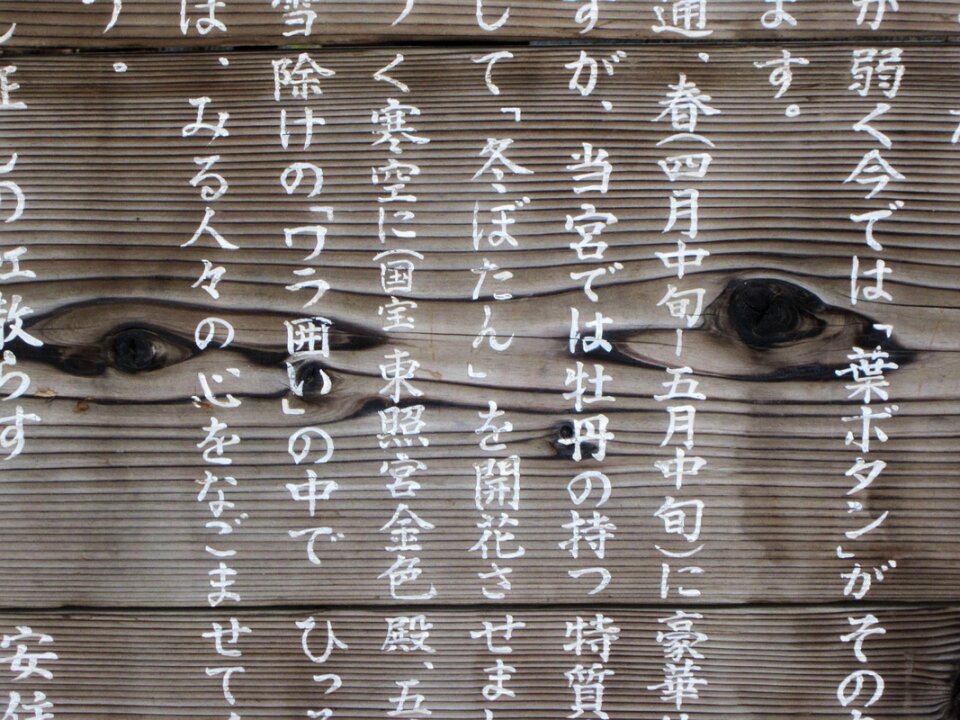 が弱く今では「葉ボタン」がその
ます。
通、春(四月中旬ー五月中旬)に豪華
すが、当宮では牡丹の持つ特質
して「冬ぼたん」を開花させま
く寒空に(国宝 東照宮金色殿、五
雪除けの「ワラ囲い」の中でひっ
ほ、みる人々の心をなごませて
。
安住